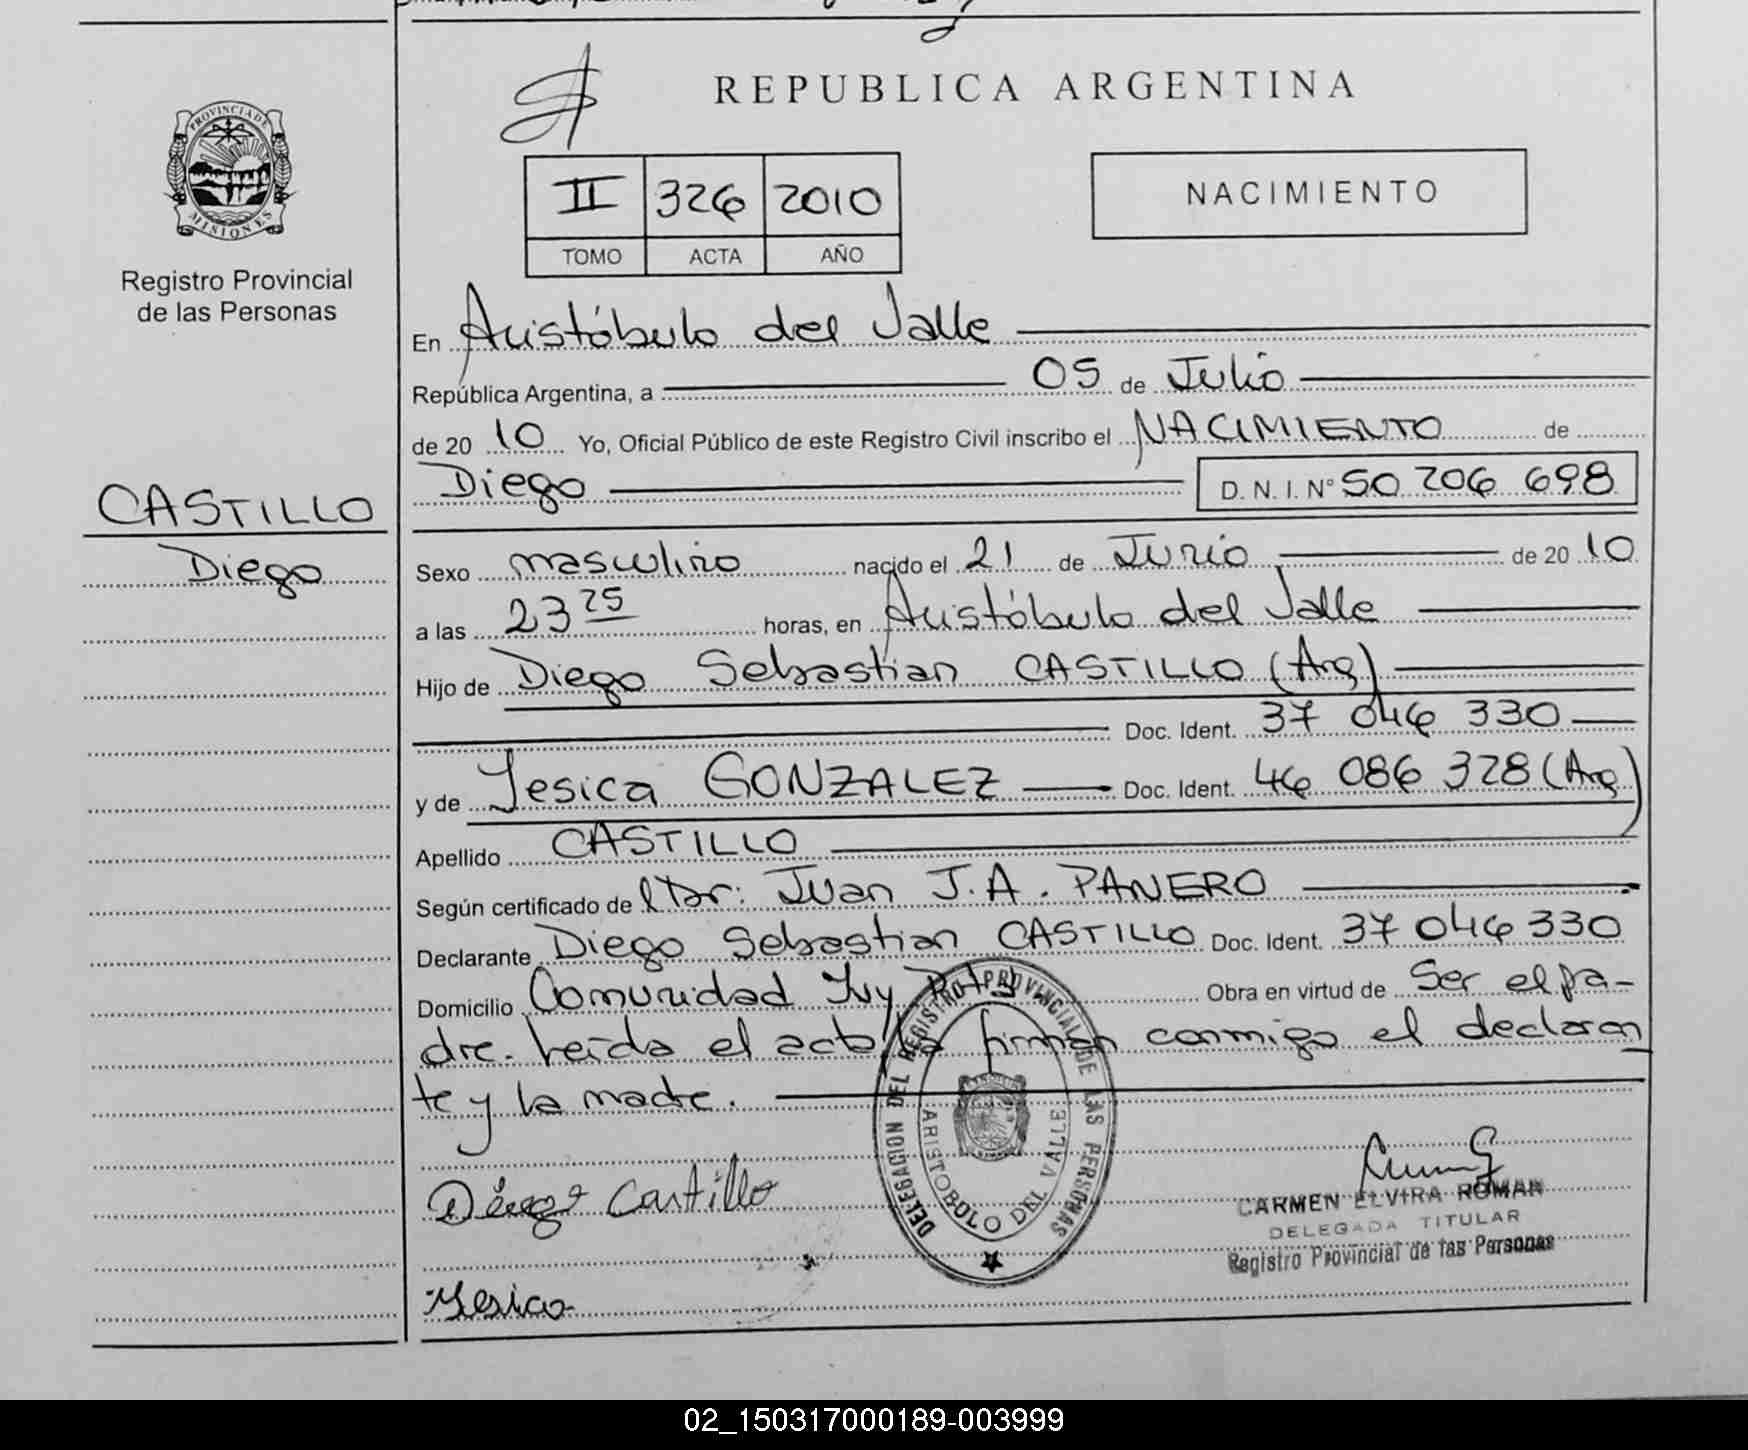 REPUBLICA ARGENTINA
PROVINCIA DE MISIONES
Registro Provincial
de las Personas
II 326 2010
TOMO ACTA AÑO
NACIMIENTO
En Aristóbulo del Valle
República Argentina, a 05 de Julio
de 20 10 Yo, Oficial Público de este Registro Civil inscribo el NACIMIENTO de
Diego D. N. I. N° 50 206 698
CASTILLO
Diego
Sexo masculino nacido el 21 de Junio de 20 10
a las 23 25 horas, en Aristóbulo del Valle
Hijo de Diego Sebastian CASTILLO (Arg)
Doc. Ident. 37 046 330
y de Yesica GONZALEZ Doc. Ident. 46 086 328 (Arg)
Apellido CASTILLO
Según certificado del Dr: Juan J. A. PANERO
Declarante Diego Sebastian CASTILLO Doc. Ident. 37 046 330
Domicilio Comunidad Ivy Obra en virtud de Ser el pa-
dre. Leida el acta la firman conmigo el declaran
te y la madre.
DELEGACION DEL REGISTRO PROVINCIAL DE LAS PERSONAS
ARISTOBOLO DEL VALLE
Diego Castillo
CARMEN ELVIRA ROMAN
DELEGADA TITULAR
Registro Provincial de las Personas
Yesica
02_150317000189-003999